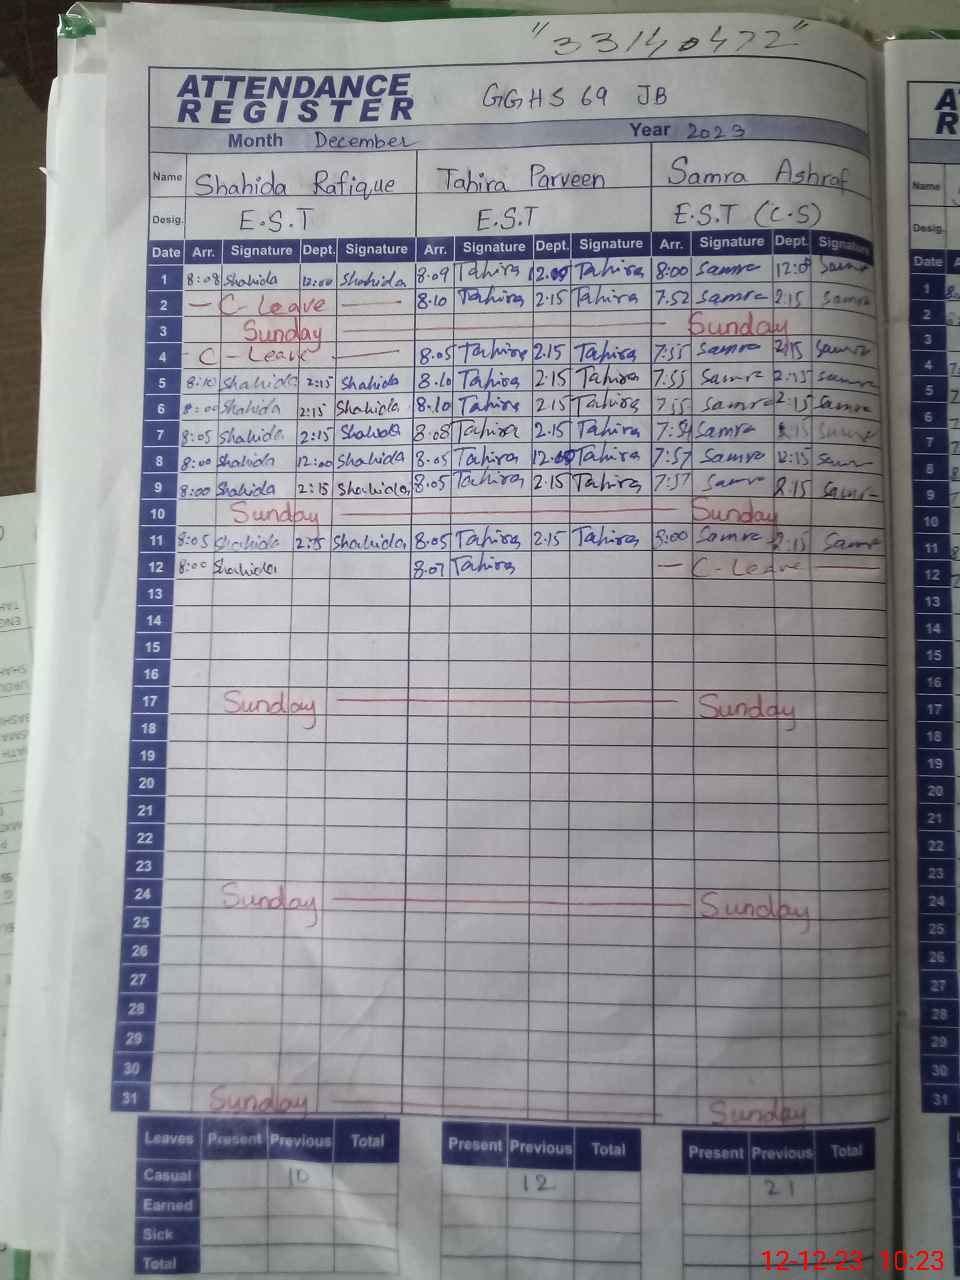 "33140472"
ATTENDANCE
REGISTER
GGHS 69 JB
Month December Year 2023
Name Shahida Rafique Tahira Parveen Samra Ashraf
Desig. E.S.T E.S.T E.S.T (C.S)
Date Arr. Signature Dept. Signature Arr. Signature Dept. Signature Arr. Signature Dept. Signature
1 8:08 Shahida 12:00 Shahida 8.09 Tahira 12.00 Tahira 8:00 Samra 12:0 Samra
2 — C-Leave — 8.10 Tahira 2.15 Tahira 7.52 Samra 2:15 Samra
3 Sunday — Sunday
4 - C - Leave — 8.05 Tahira 2.15 Tahira 7:55 Samra 2:15 Samra
5 8:10 Shahida 2:15 Shahida 8.10 Tahira 2.15 Tahira 7:55 Samra 2:15 Samra
6 8:00 Shahida 2:15 Shahida 8.10 Tahira 2.15 Tahira 7:55 Samra 2:15 Samra
7 8:05 Shahida 2:15 Shahida 8.08 Tahira 2.15 Tahira 7:54 Samra 2:15 Samra
8 8:00 Shahida 12:00 Shahida 8.05 Tahira 12.00 Tahira 7:57 Samra 12:15 Samra
9 8:00 Shahida 2:15 Shahida 8.05 Tahira 2.15 Tahira 7:57 Samra 2:15 Samra
10 Sunday — Sunday
11 8:05 Shahida 2:15 Shahida 8.05 Tahira 2.15 Tahira 8:00 Samra 2:15 Samra
12 8:00 Shahida 8.07 Tahira — C-Leave —
13
14
15
16
17 Sunday — Sunday
18
19
20
21
22
23
24 Sunday — Sunday
25
26
27
28
29
30
31 Sunday — Sunday
Leaves Present Previous Total Present Previous Total Present Previous Total
Casual 10 12 21
Earned
Sick
Total
12-12-23 10:23